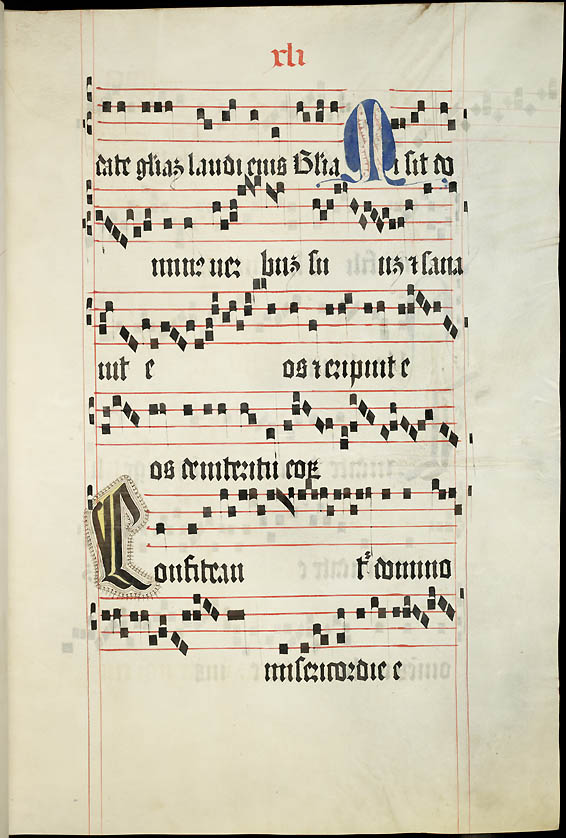 xli
date gl̄iaz laudi eius Gl̄ia Misit do
minꝰ uerbuz suuz ⁊ sana
uit eos ⁊ eripuit e
os de interitu eoꝝ
Confitean tᷣ domino
misericordie e